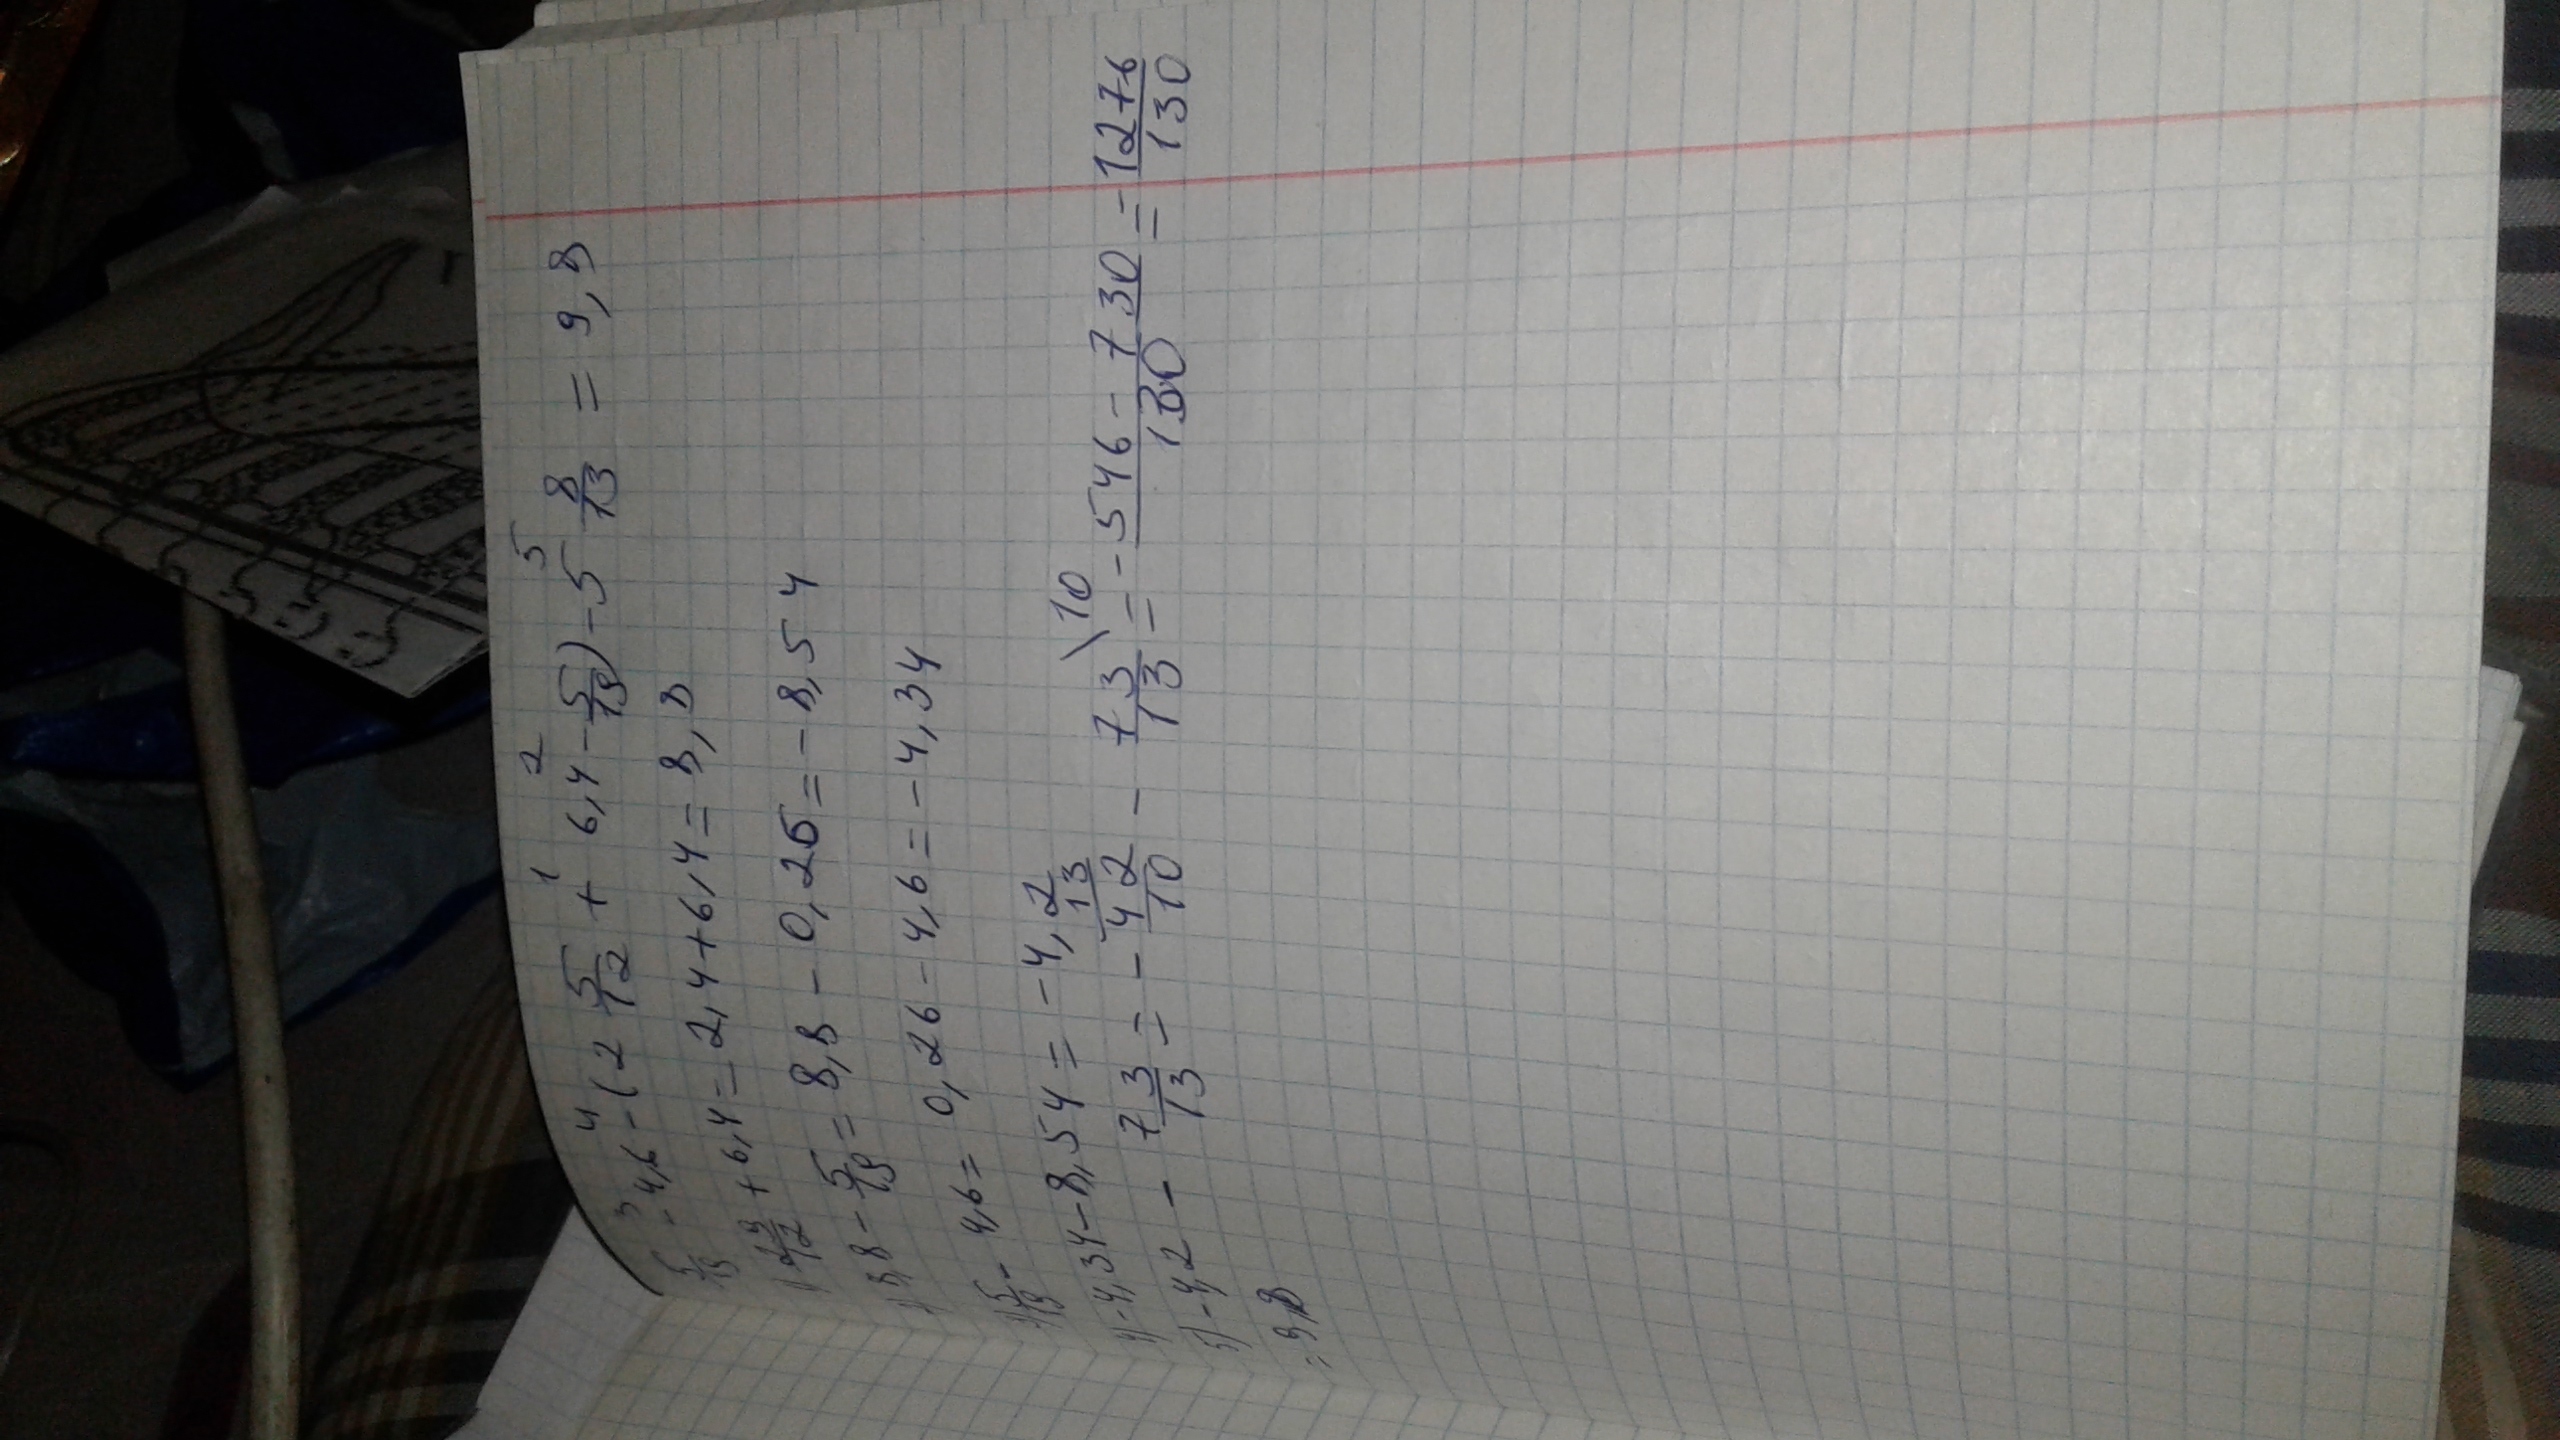 3 4 1 2 5
5/19 - 4,6 - (2 5/12 + 6,4 - 5/19) - 5 8/13 = 9,8
+ 6,4 = 2,4 + 6,4 = 8,8
8,8 - 5/19 = 8,8 - 0,26 = - 8,54
5/19 - 4,6 = 0,26 - 4,6 = - 4,34
4) - 4,34 - 8,54 = - 4,2
5) - 4,2 - 73/13 = - 42/10 \13 - 73/13 \10 = - 546 - 730/130 = - 1276/130
= 9,8